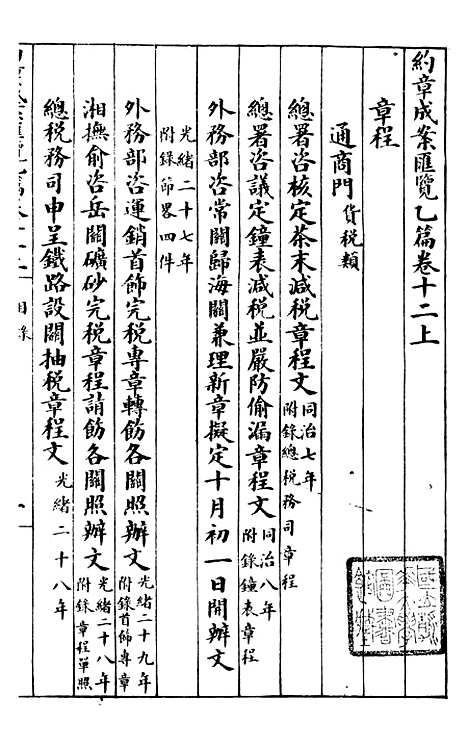 約章成案匯覽乙篇卷十二上
章程
通商門 貨税類
總署咨核定茶末減税章程文 同治七年 附錄總税務司章程
總署咨議定鐘表減税並嚴防偷漏章程文 同治八年 附錄鐘表章程
外務部咨常關歸海關兼理新章擬定十月初一日開辦文
光緒二十七年 附錄節畧四件
外務部咨運銷首飾完税專章轉飭各關照辦文 光緒二十九年 附錄首飾專章
湘撫俞咨岳關礦砂完税章程請飭各關照辦文 光緒二十八年 附錄章程單照
總税務司申呈鐵路設關抽税章程文 光緒二十八年
目錄